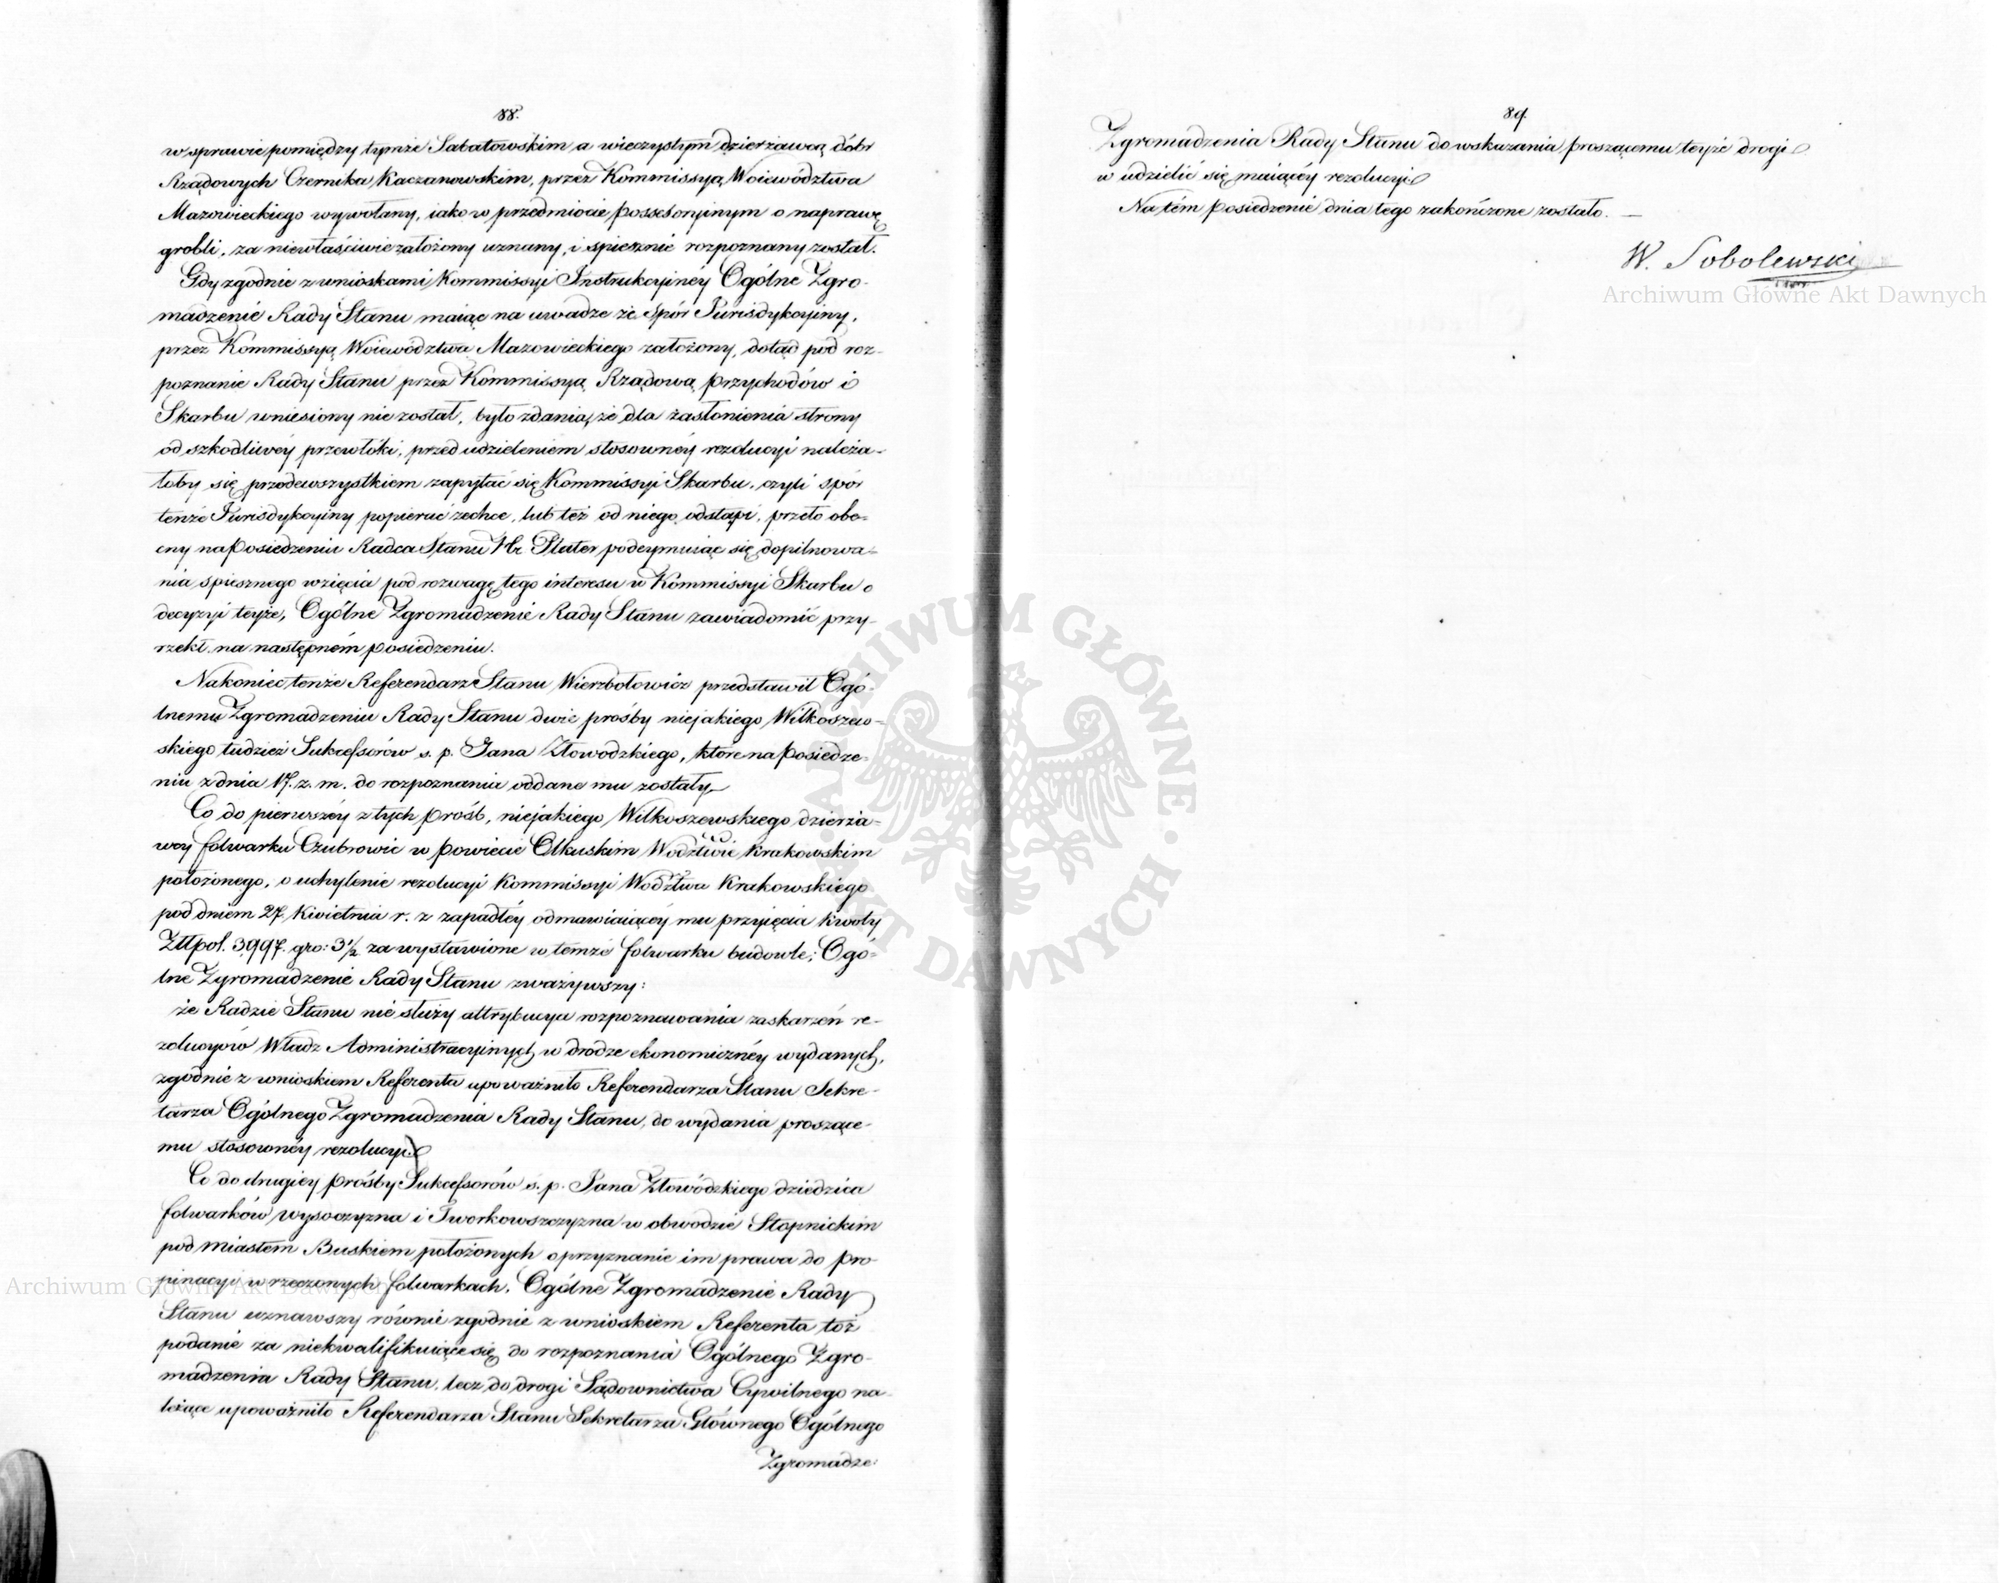 88.
w sprawie pomiędzy tymże Sabatowskim a wieczystym dzierżawcą dóbr
Rządowych Czernika Kaczanowskim, przez Kommissyą Woiewództwa
Mazowieckiego wywołany, iako w przedmiocie possessoryinym o naprawę
grobli, za niewłaściwie założony uznany, i spiesznie rozpoznany został.
Gdy zgodnie z wnioskami Kommissyi Instrukcyinéy Ogólne Zgro-
madzenie Rady Stanu maiąc na uwadze że Spór Jurisdykcyiny,
przez Kommissyą Woiewództwa Mazowieckiego założony, dotąd pod roz-
poznanie Rady Stanu przez Kommissyą Rządową Przychodów i
Skarbu wniesiony nie został, było zdania, że dla zasłonienia strony
od szkodliwéy przewłoki, przed udzieleniem stosownéy rezolucyi należa-
łoby się przedewszystkiem zapytać się Kommissyi Skarbu, czyli spór
tenże Jurisdykcyiny popierać zechce, lub też od niego odstąpi, przeto obe-
cny na Posiedzeniu Radca Stanu Hr. Plater podeymuiąc się dopilnowa-
nia spiesznego wzięcia pod rozwagę tego interesu w Kommissyi Skarbu o
decyzyi teyże, Ogólne Zgromadzenie Rady Stanu zawiadomić przy-
rzekł na następném posiedzeniu.
Nakoniec tenże Referendarz Stanu Wierzbołowicz przedstawił Ogó-
lnemu Zgromadzeniu Rady Stanu dwie prośby niejakiego Wilkoszew-
skiego tudzież Sukcessorów s. p. Jana Złowodzkiego, które na Posiedze-
niu z dnia 17. z. m. do rozpoznania oddane mu zostały
Co do pierwszéy z tych prośb, niejakiego Wilkoszewskiego dzierża-
wcy folwarku Czubrowic w Powiecie Olkuskim Wodztwie Krakowskim
położonego, o uchylenie rezolucyi Kommissyi Wodztwa Krakowskiego
pod dniem 27 Kwietnia r. z zapadłéy odmawiaiącéy mu przyięcia kwoty
Złtpol. 3997. gro: 3½ za wystawione w temże folwarku budowle; Ogó-
lne Zgromadzenie Rady Stanu zważywszy:
że Radzie Stanu nie służy attrybucya rozpoznawania zaskarżeń re-
zolucyów Władz Administracyinych w drodze ekonomicznéy wydanych,
zgodnie z wnioskiem Referenta upoważniło Referendarza Stanu Sekre-
tarza Ogólnego Zgromadzenia Rady Stanu, do wydania proszące-
mu stosownéy rezolucyi
Co do drugiey prośby Sukcessorów s. p. Jana Złowódzkiego dziedzica
folwarków Wysoczyzna i Tworkowszczyzna w obwodzie Stopnickim
pod miastem Buskiem położonych o przyznanie im prawa do pro-
pinacyi w rzeczonych folwarkach, Ogólne Zgromadzenie Rady
Stanu uznawszy równie zgodnie z wnioskiem Referenta toż
podanie za niekwalifikuiące się do rozpoznania Ogólnego Zgro-
madzenia Rady Stanu, lecz do drogi Sądownictwa Cywilnego na-
leżące upoważniło Referendarza Stanu Sekretarza Głównego Ogólnego
Zgromadze:
89.
Zgromadzenia Rady Stanu do wskazania proszącemu teyże drogi
w udzielić się maiącéy rezolucyi
Na tém Posiedzenie dnia tego zakończone zostało. —
W. Sobolewski
Archiwum Główne Akt Dawnych
Archiwum Główne Akt Dawnych
ARCHIWUM GŁÓWNE AKT DAWNYCH